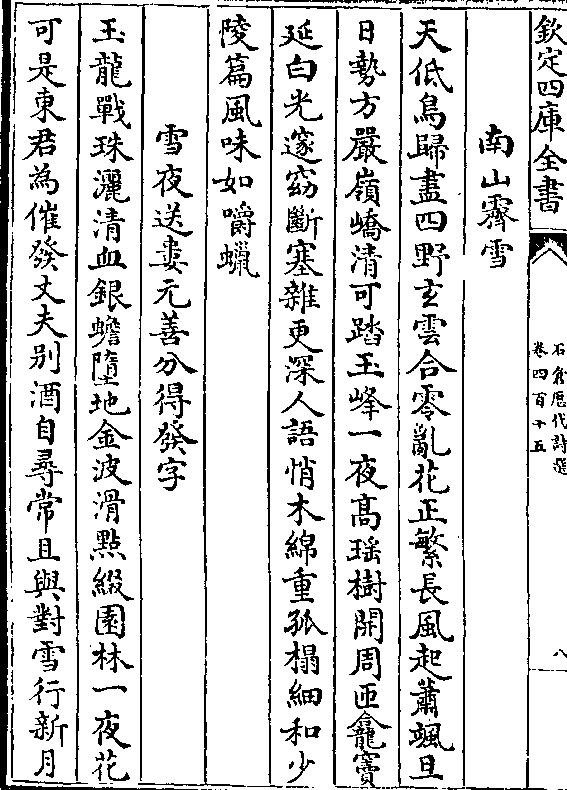 欽定四庫全書
石倉歷代詩選
卷四百十五
八
南山霽雪
天低鳥歸盡四野玄雲合零亂花正繁長風起蕭颯旦
日勢方嚴嶺嶠清可踏玉峰一夜高瑶樹開周匝龕竇
延白光邃窈斷塞雜更深人語悄木綿重孤榻細和少
陵篇風味如嚼蠟
雪夜送婁元善分得發字
玉龍戰珠灑清血銀蟾墮地金波滑點綴園林一夜花
可是東君為催發丈夫别酒自尋常且與對雪行新月